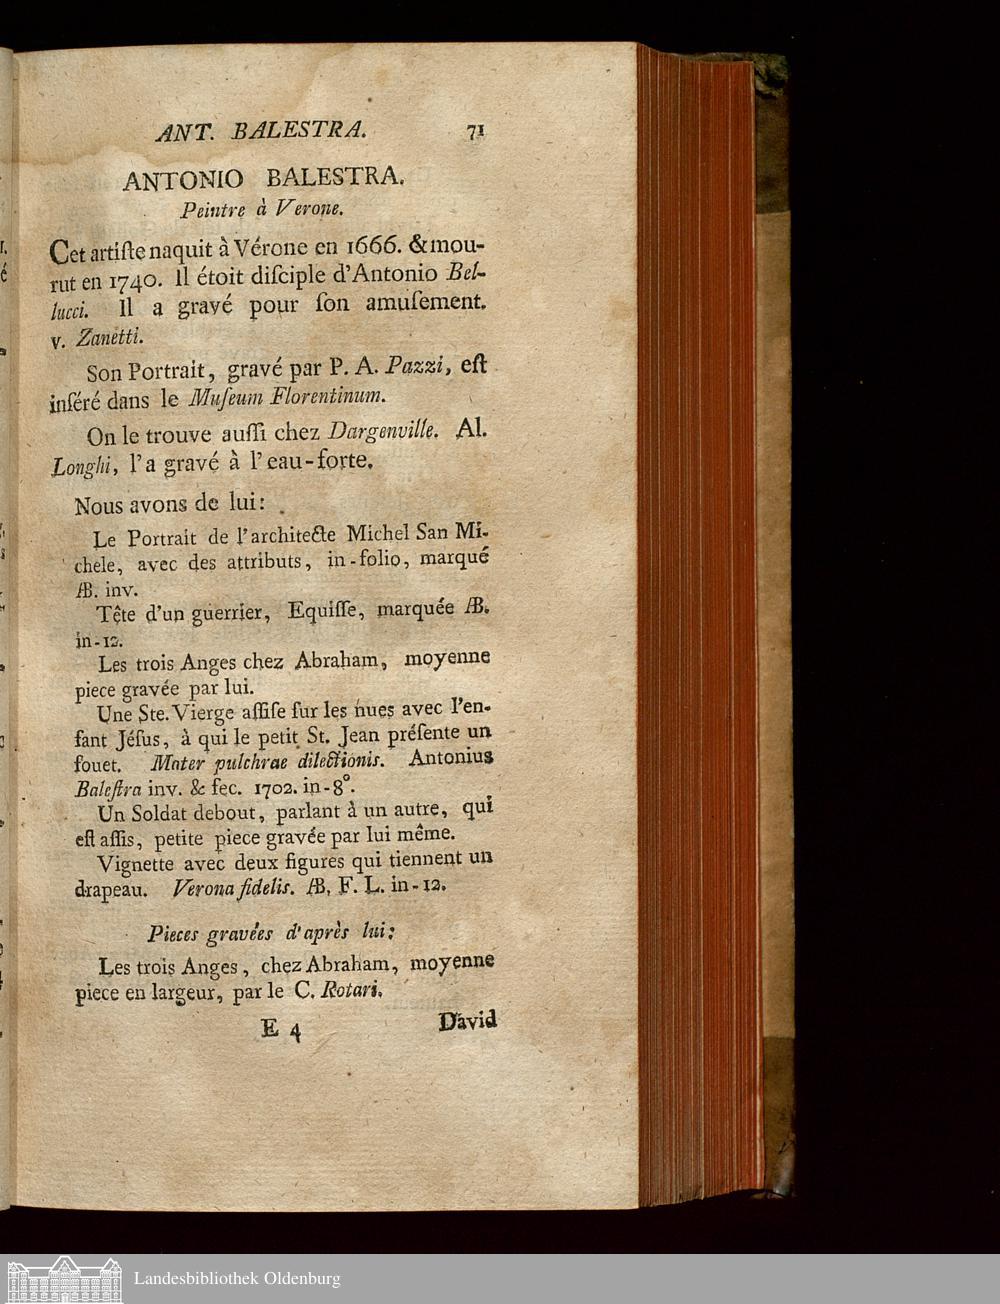 ANT. BALESTRA. 71
ANTONIO BALESTRA.
Peintre à Verone.
Cet artiſte naquit à Vérone en 1666. & mou-
rut en 1740. Il étoit diſciple d'Antonio Bel-
lucci. Il a gravé pour ſon amuſement.
v. Zanetti.
Son Portrait, gravé par P. A. Pazzi, eſt
inſéré dans le Muſeum Florentinum.
On le trouve auſſi chez Dargenville. Al.
Longhi, l'a gravé à l'eau-forte.
Nous avons de lui:
Le Portrait de l'architecte Michel San Mi-
chele, avec des attributs, in-folio, marqué
Æ. inv.
Tête d'un guerrier, Equiſſe, marquée Æ.
in-12.
Les trois Anges chez Abraham, moyenne
piece gravée par lui.
Une Ste. Vierge aſſiſe ſur les nues avec l'en-
fant Jéſus, à qui le petit St. Jean préſente un
fouet. Mater pulchrae dilectionis. Antonius
Baleſtra inv. & fec. 1702. in-8°.
Un Soldat debout, parlant à un autre, qui
eſt aſſis, petite piece gravée par lui même.
Vignette avec deux figures qui tiennent un
drapeau. Verona fidelis. Æ, F. L. in-12.
Pieces gravées d'après lui:
Les trois Anges, chez Abraham, moyenne
piece en largeur, par le C. Rotari.
E 4 David
Landesbibliothek Oldenburg